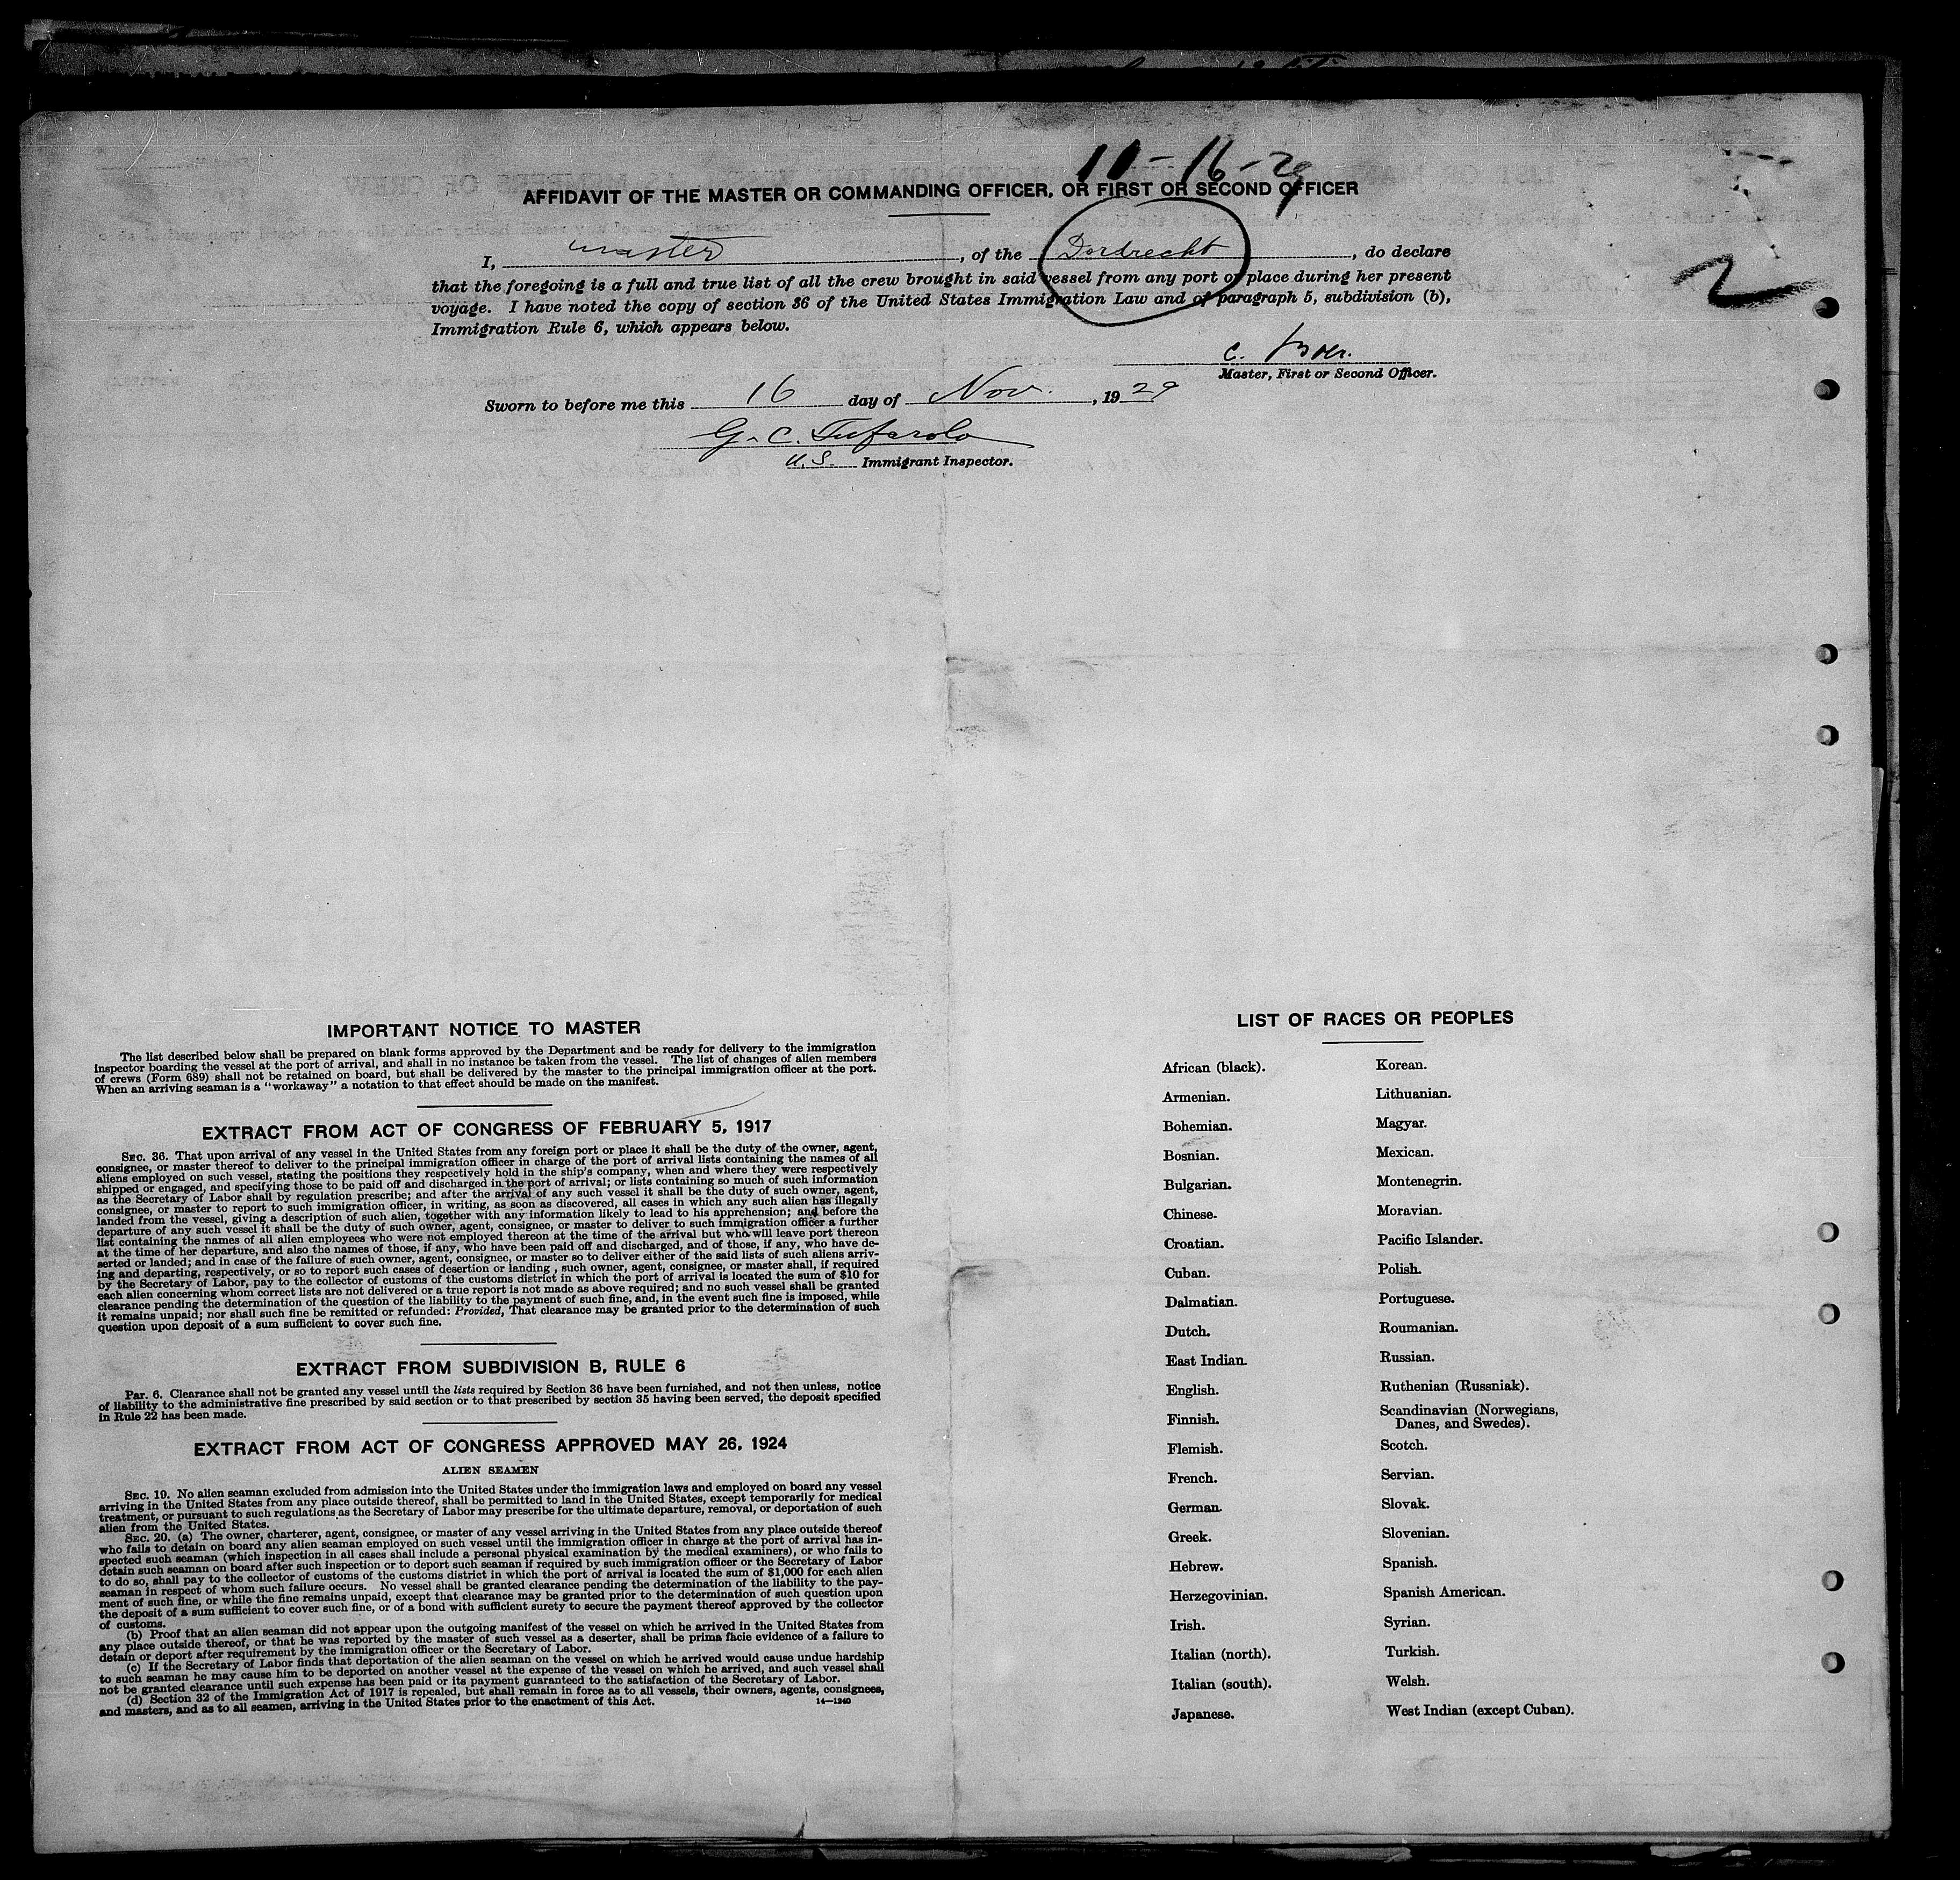 11-16-29
AFFIDAVIT OF THE MASTER OR COMMANDING OFFICER, OR FIRST OR SECOND OFFICER
I, master, of the Dordrecht, do declare
that the foregoing is a full and true list of all the crew brought in said vessel from any port or place during her present
voyage. I have noted the copy of section 36 of the United States Immigration Law and of paragraph 5, subdivision (b),
Immigration Rule 6, which appears below.
2
C. Boer.
Master, First or Second Officer.
Sworn to before me this 16 day of Nov., 1929
G. C. Tufarolo
U.S. Immigrant Inspector.
IMPORTANT NOTICE TO MASTER
The list described below shall be prepared on blank forms approved by the Department and be ready for delivery to the immigration
inspector boarding the vessel at the port of arrival, and shall in no instance be taken from the vessel. The list of changes of alien members
of crews (Form 689) shall not be retained on board, but shall be delivered by the master to the principal immigration officer at the port.
When an arriving seaman is a "workaway" a notation to that effect should be made on the manifest.
EXTRACT FROM ACT OF CONGRESS OF FEBRUARY 5, 1917
SEC. 36. That upon arrival of any vessel in the United States from any foreign port or place it shall be the duty of the owner, agent,
consignee, or master thereof to deliver to the principal immigration officer in charge of the port of arrival lists containing the names of all
aliens employed on such vessel, stating the positions they respectively hold in the ship's company, when and where they were respectively
shipped or engaged, and specifying those to be paid off and discharged in the port of arrival; or lists containing so much of such information
as the Secretary of Labor shall by regulation prescribe; and after the arrival of any such vessel it shall be the duty of such owner, agent,
consignee, or master to report to such immigration officer, in writing, as soon as discovered, all cases in which any such alien has illegally
landed from the vessel, giving a description of such alien, together with any information likely to lead to his apprehension; and before the
departure of any such vessel it shall be the duty of such owner, agent, consignee, or master to deliver to such immigration officer a further
list containing the names of all alien employees who were not employed thereon at the time of the arrival but who will leave port thereon
at the time of her departure, and also the names of those, if any, who have been paid off and discharged, and of those, if any, who have de-
serted or landed; and in case of the failure of such owner, agent, consignee, or master so to deliver either of the said lists of such aliens arriv-
ing and departing, respectively, or so to report such cases of desertion or landing, such owner, agent, consignee, or master shall, if required
by the Secretary of Labor, pay to the collector of customs of the customs district in which the port of arrival is located the sum of $10 for
each alien concerning whom correct lists are not delivered or a true report is not made as above required; and no such vessel shall be granted
clearance pending the determination of the question of the liability to the payment of such fine, and, in the event such fine is imposed, while
it remains unpaid; nor shall such fine be remitted or refunded: Provided, That clearance may be granted prior to the determination of such
question upon deposit of a sum sufficient to cover such fine.
EXTRACT FROM SUBDIVISION B, RULE 6
Par. 6. Clearance shall not be granted any vessel until the lists required by Section 36 have been furnished, and not then unless, notice
of liability to the administrative fine prescribed by said section or to that prescribed by section 35 having been served, the deposit specified
in Rule 22 has been made.
EXTRACT FROM ACT OF CONGRESS APPROVED MAY 26, 1924
ALIEN SEAMEN
SEC. 19. No alien seaman excluded from admission into the United States under the immigration laws and employed on board any vessel
arriving in the United States from any place outside thereof, shall be permitted to land in the United States, except temporarily for medical
treatment, or pursuant to such regulations as the Secretary of Labor may prescribe for the ultimate departure, removal, or deportation of such
alien from the United States.
SEC. 20. (a) The owner, charterer, agent, consignee, or master of any vessel arriving in the United States from any place outside thereof
who fails to detain on board any alien seaman employed on such vessel until the immigration officer in charge at the port of arrival has in-
spected such seaman (which inspection in all cases shall include a personal physical examination by the medical examiners), or who fails to
detain such seaman on board after such inspection or to deport such seaman if required by such immigration officer or the Secretary of Labor
to do so, shall pay to the collector of customs of the customs district in which the port of arrival is located the sum of $1,000 for each alien
seaman in respect of whom such failure occurs. No vessel shall be granted clearance pending the determination of the liability to the pay-
ment of such fine, or while the fine remains unpaid, except that clearance may be granted prior to the determination of such question upon
the deposit of a sum sufficient to cover such fine, or of a bond with sufficient surety to secure the payment thereof approved by the collector
of customs.
(b) Proof that an alien seaman did not appear upon the outgoing manifest of the vessel on which he arrived in the United States from
any place outside thereof, or that he was reported by the master of such vessel as a deserter, shall be prima facie evidence of a failure to
detain or deport after requirement by the immigration officer or the Secretary of Labor.
(c) If the Secretary of Labor finds that deportation of the alien seaman on the vessel on which he arrived would cause undue hardship
to such seaman he may cause him to be deported on another vessel at the expense of the vessel on which he arrived, and such vessel shall
not be granted clearance until such expense has been paid or its payment guaranteed to the satisfaction of the Secretary of Labor.
(d) Section 32 of the Immigration Act of 1917 is repealed, but shall remain in force as to all vessels, their owners, agents, consignees,
and masters, and as to all seamen, arriving in the United States prior to the enactment of this Act. 14—1240
LIST OF RACES OR PEOPLES
African (black).
Armenian.
Bohemian.
Bosnian.
Bulgarian.
Chinese.
Croatian.
Cuban.
Dalmatian.
Dutch.
East Indian.
English.
Finnish.
Flemish.
French.
German.
Greek.
Hebrew.
Herzegovinian.
Irish.
Italian (north).
Italian (south).
Japanese.
Korean.
Lithuanian.
Magyar.
Mexican.
Montenegrin.
Moravian.
Pacific Islander.
Polish.
Portuguese.
Roumanian.
Russian.
Ruthenian (Russniak).
Scandinavian (Norwegians,
Danes, and Swedes).
Scotch.
Servian.
Slovak.
Slovenian.
Spanish.
Spanish American.
Syrian.
Turkish.
Welsh.
West Indian (except Cuban).